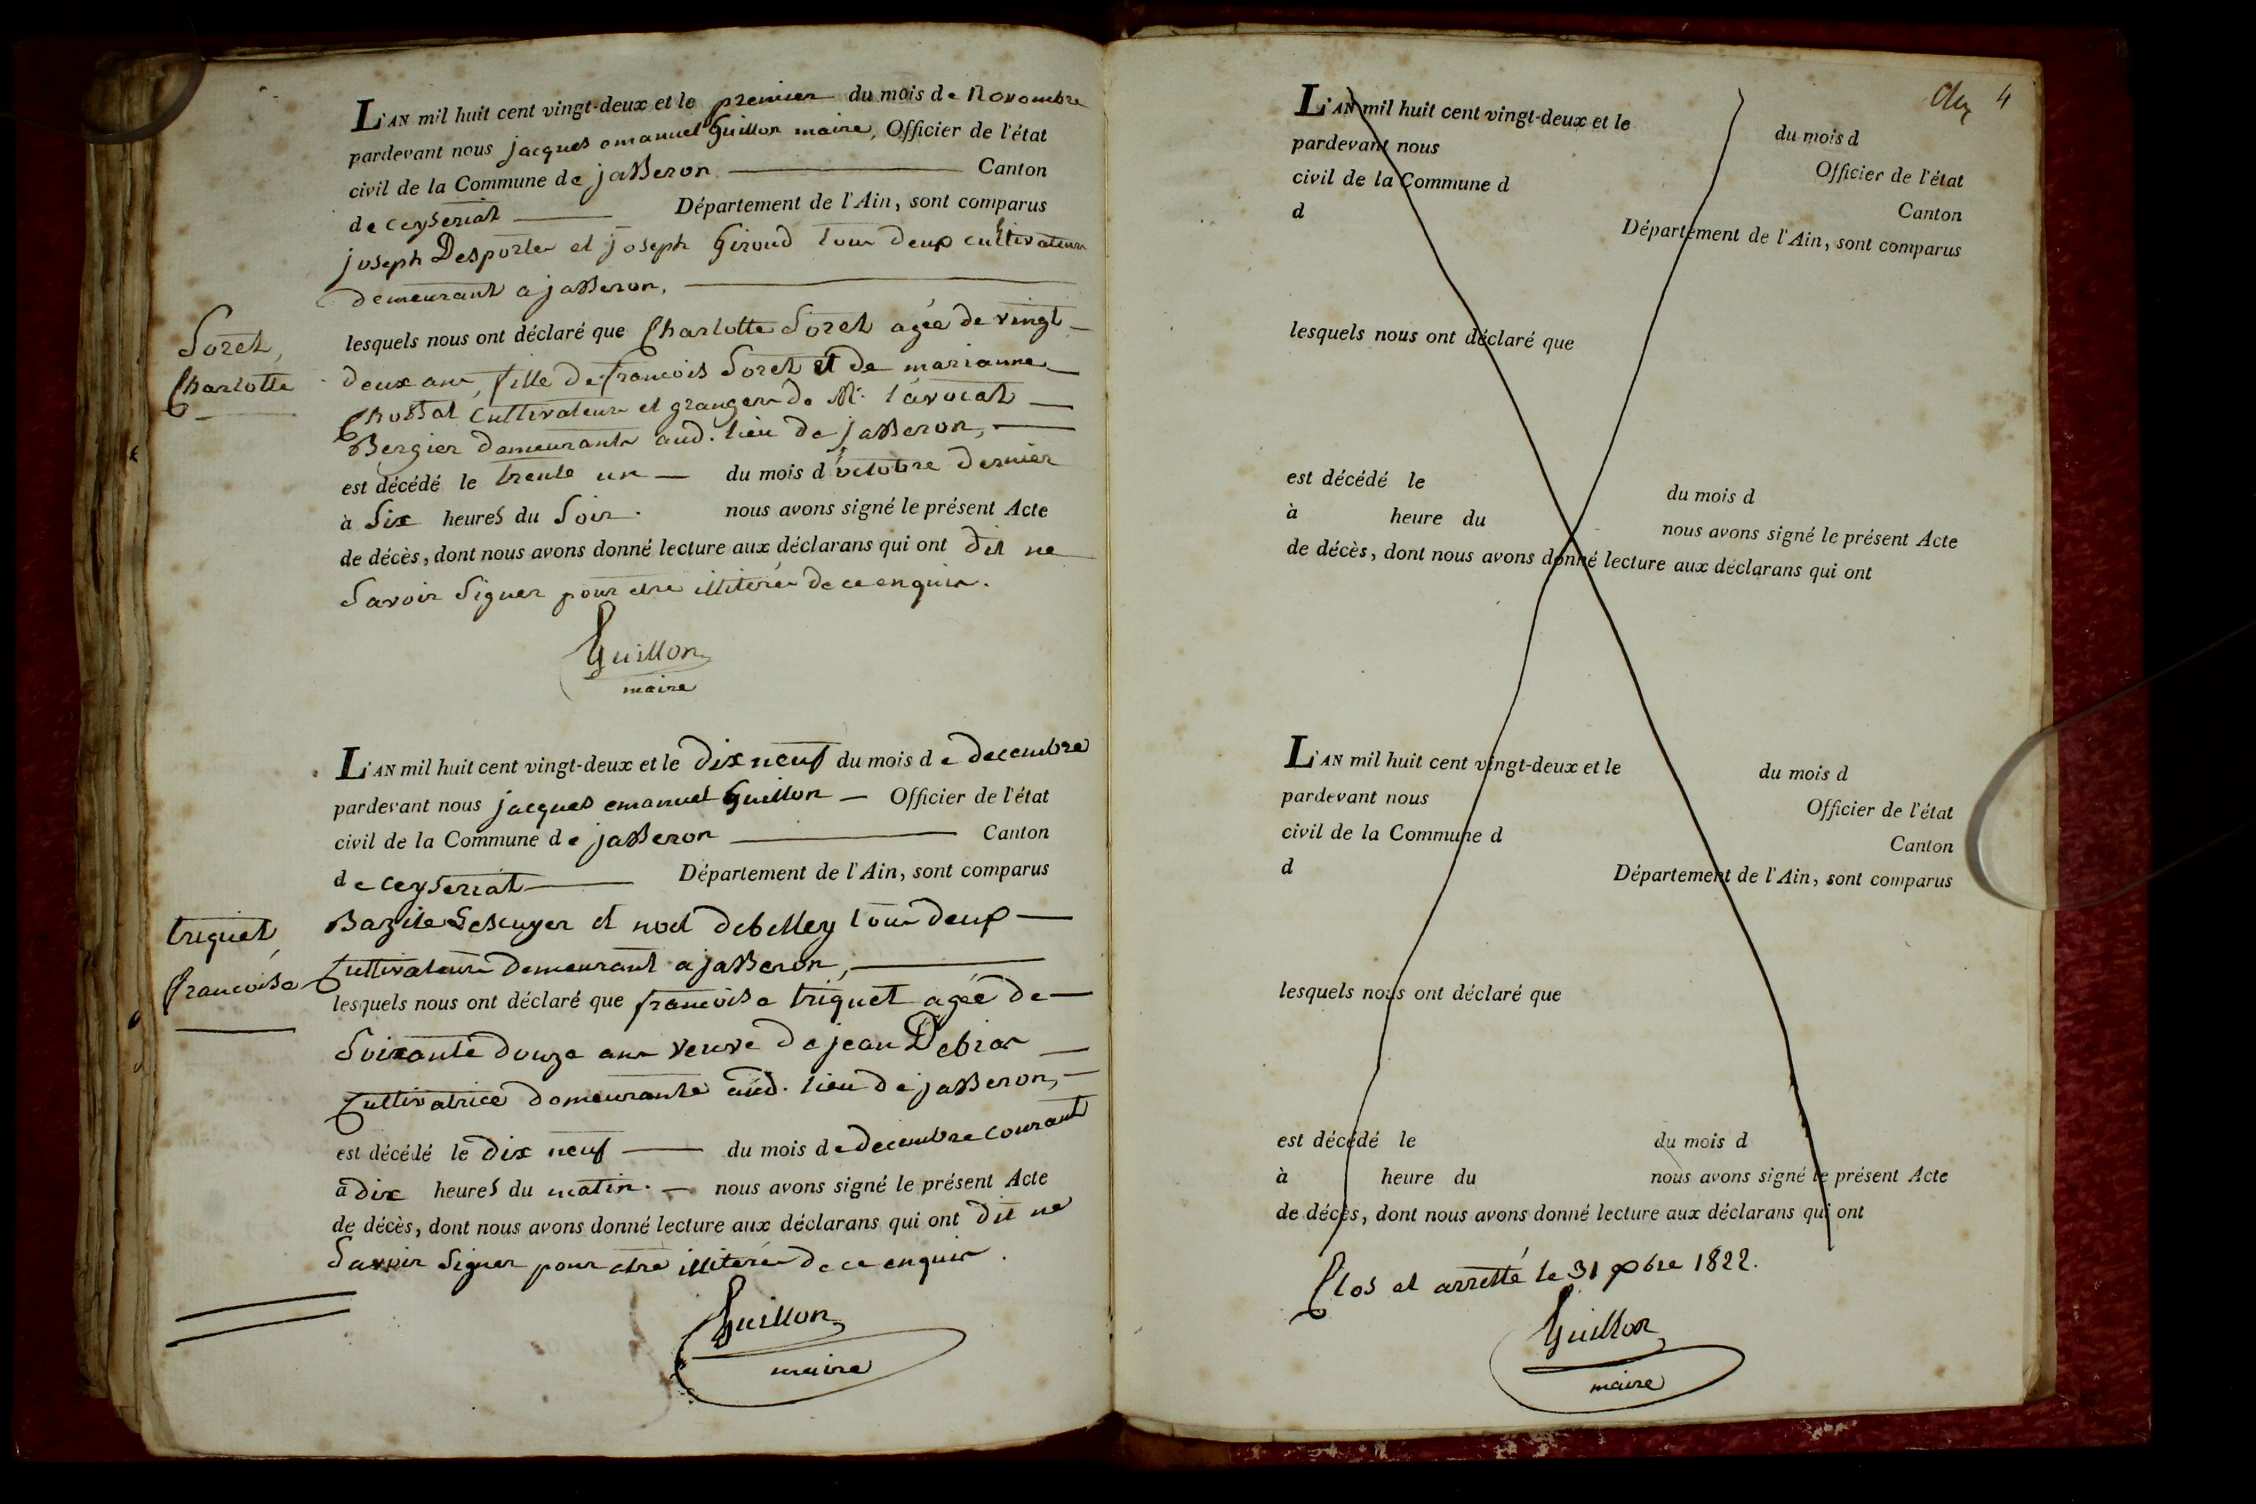 L'AN mil huit cent vingt-deux et le premier du mois de novembre
pardevant nous jacques emanuel Guillon maire, Officier de l'état
civil de la Commune de jasseron Canton
de ceyseriat Département de l'Ain, sont comparus
joseph Desporte et joseph Giroud tous deux cultivateurs
demeurant a jasseron,
Soret,
Charlotte
lesquels nous ont déclaré que Charlotte Soret agée de vingt
deux ans, fille de francois Soret et de marianne
Chossat Cultivateurs et grangers de Mr. l'avocat
Bergier demeurants aud. lieu de jasseron,
est décédé le trente un du mois d'octobre dernier
à Six heures du Soir. nous avons signé le présent Acte
de décès, dont nous avons donné lecture aux déclarans qui ont dit ne
Savoir Signer pour etre illiterés de ce enquis.
Guillon
maire
L'AN mil huit cent vingt-deux et le dix neuf du mois de decembre
pardevant nous jacques emanuel Guillon Officier de l'état
civil de la Commune de jasseron Canton
de ceyseriat Département de l'Ain, sont comparus
Bazile Lescuyer et noel debelley tous deux
Cultivateurs demeurant a jasseron,
triquet,
francoise
lesquels nous ont déclaré que francoise triquet agée de
Soixante douze ans veuve de jean Debias
Cultivatrice demeurante aud. lieu de jasseron,
est décédé le dix neuf du mois de decembre courant
à dix heures du matin. nous avons signé le présent Acte
de décès, dont nous avons donné lecture aux déclarans qui ont dit ne
Savoir Signer pour etre illiterés de ce enquis.
Guillon
maire
4
L'AN mil huit cent vingt-deux et le du mois d
pardevant nous Officier de l'état
civil de la Commune d Canton
d Département de l'Ain, sont comparus
lesquels nous ont déclaré que
est décédé le du mois d
à heure du nous avons signé le présent Acte
de décès, dont nous avons donné lecture aux déclarans qui ont
L'AN mil huit cent vingt-deux et le du mois d
pardevant nous Officier de l'état
civil de la Commune d Canton
d Département de l'Ain, sont comparus
lesquels nous ont déclaré que
est décédé le du mois d
à heure du nous avons signé le présent Acte
de décès, dont nous avons donné lecture aux déclarans qui ont
Clos et arretté le 31 xbre 1822.
Guillon
maire